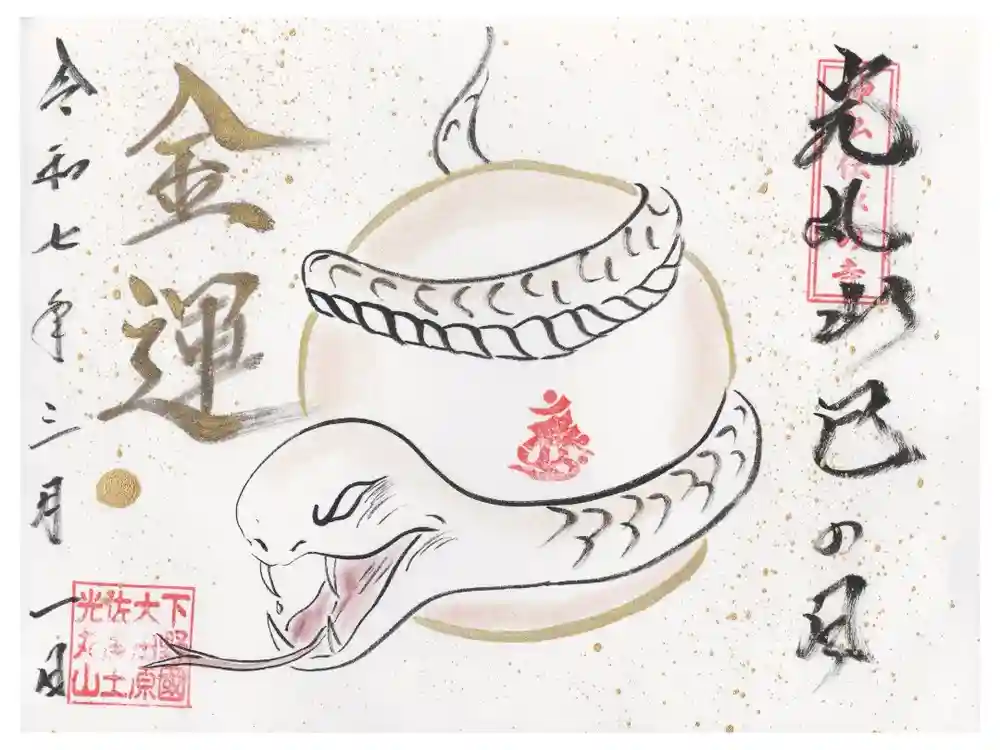 光丸山巳の日
金運
令和七年三月一日
下野國
大田原
佐久山
光丸山